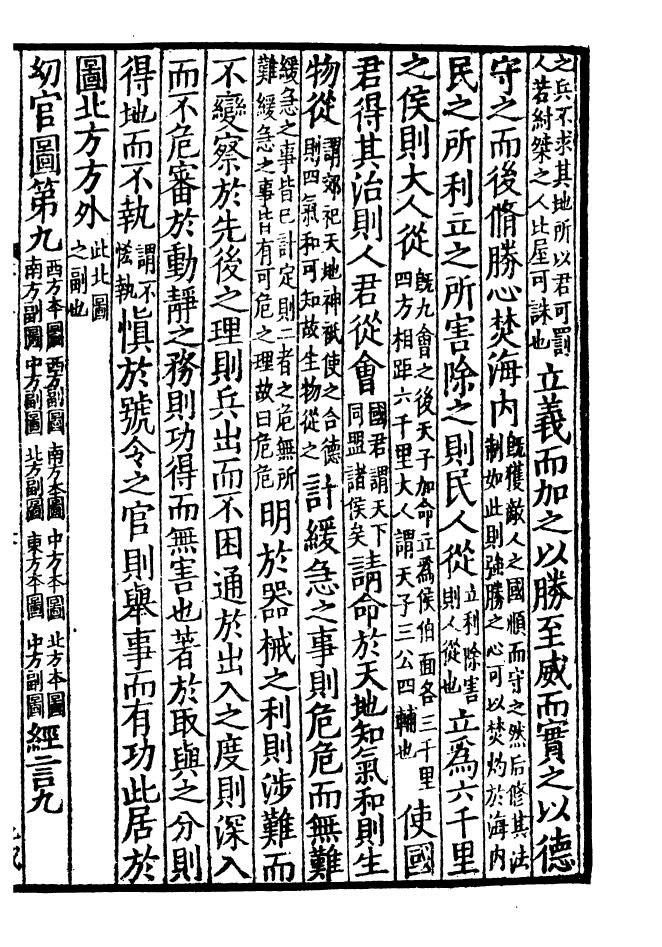 之兵不求其地所以君可罰人若紂桀之人比屋可誅也立義而加之以勝至威而實之以德
守之而後脩勝心焚海内旣獲敵人之國順而守之然后修其法制如此則強勝之心可以焚灼於海内
民之所利立之所害除之則民人從立利除害則人從也立為六千里
之侯則大人從旣九會之後天子加命立為侯伯面各三千里四方相距六千里大人謂天子三公四輔也使國
君得其治則人君從會國君謂天下同盟諸侯矣請命於天地知氣和則生
物從謂郊祀天地神祇使之合德則四氣和可知故生物從之計緩急之事則危危而無難
緩急之事皆已計定則二者之危無所難緩急之事皆有可危之理故曰危危明於器械之利則涉難而
不變察於先後之理則兵出而不困通於出入之度則深入
而不危審於動靜之務則功得而無害也著於取與之分則
得地而不執謂不恡執慎於號令之官則舉事而有功此居於
圖北方方外此北圖之副也
幼官圖第九西方本圖南方副圖西方副圖中方副圖南方本圖北方副圖中方本圖東方本圖北方本圖中方副圖經言九